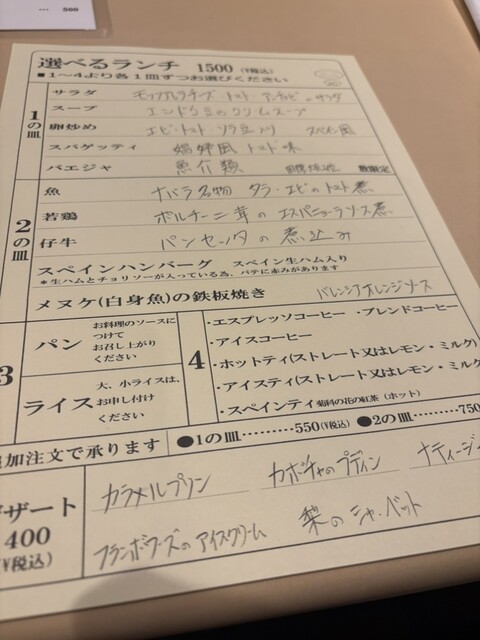 500
選べるランチ 1500 (税込)
■1～4より各1皿ずつお選びください
1の皿
サラダ モッツァレラチーズ・トマト・アンチョビのサラダ
スープ エンドウ豆のクリームスープ
卵炒め エビ・トマト・ソラ豆入り スペイン風
スパゲッティ 娼婦風トマト味
パエジャ 魚介類 数限定
2の皿
魚 ナバラ名物 タラ・エビのトマト煮
若鶏 ポルチーニ茸のエスパニョーラソース煮
仔牛 パンセッタの煮込み
スペインハンバーグ スペイン生ハム入り
＊生ハムとチョリソーが入っている為、パテに赤みがあります
メヌケ(白身魚)の鉄板焼き バレンシアオレンジソース
3
パン お料理のソースに
つけて
お召し上がり
ください
ライス 大、小ライスは、
お申し付け
ください
4
・エスプレッソコーヒー ・ブレンドコーヒー
・アイスコーヒー
・ホットティ(ストレート又はレモン・ミルク)
・アイスティ(ストレート又はレモン・ミルク
・スペインティ 菊科の花の紅茶（ホット）
追加注文で承ります ●1の皿………550(税込) ●2の皿………750
デザート
400
(税込)
カラメルプリン カボチャのプディン ナティージ
フランボワーズのアイスクリーム 梨のシャーベット